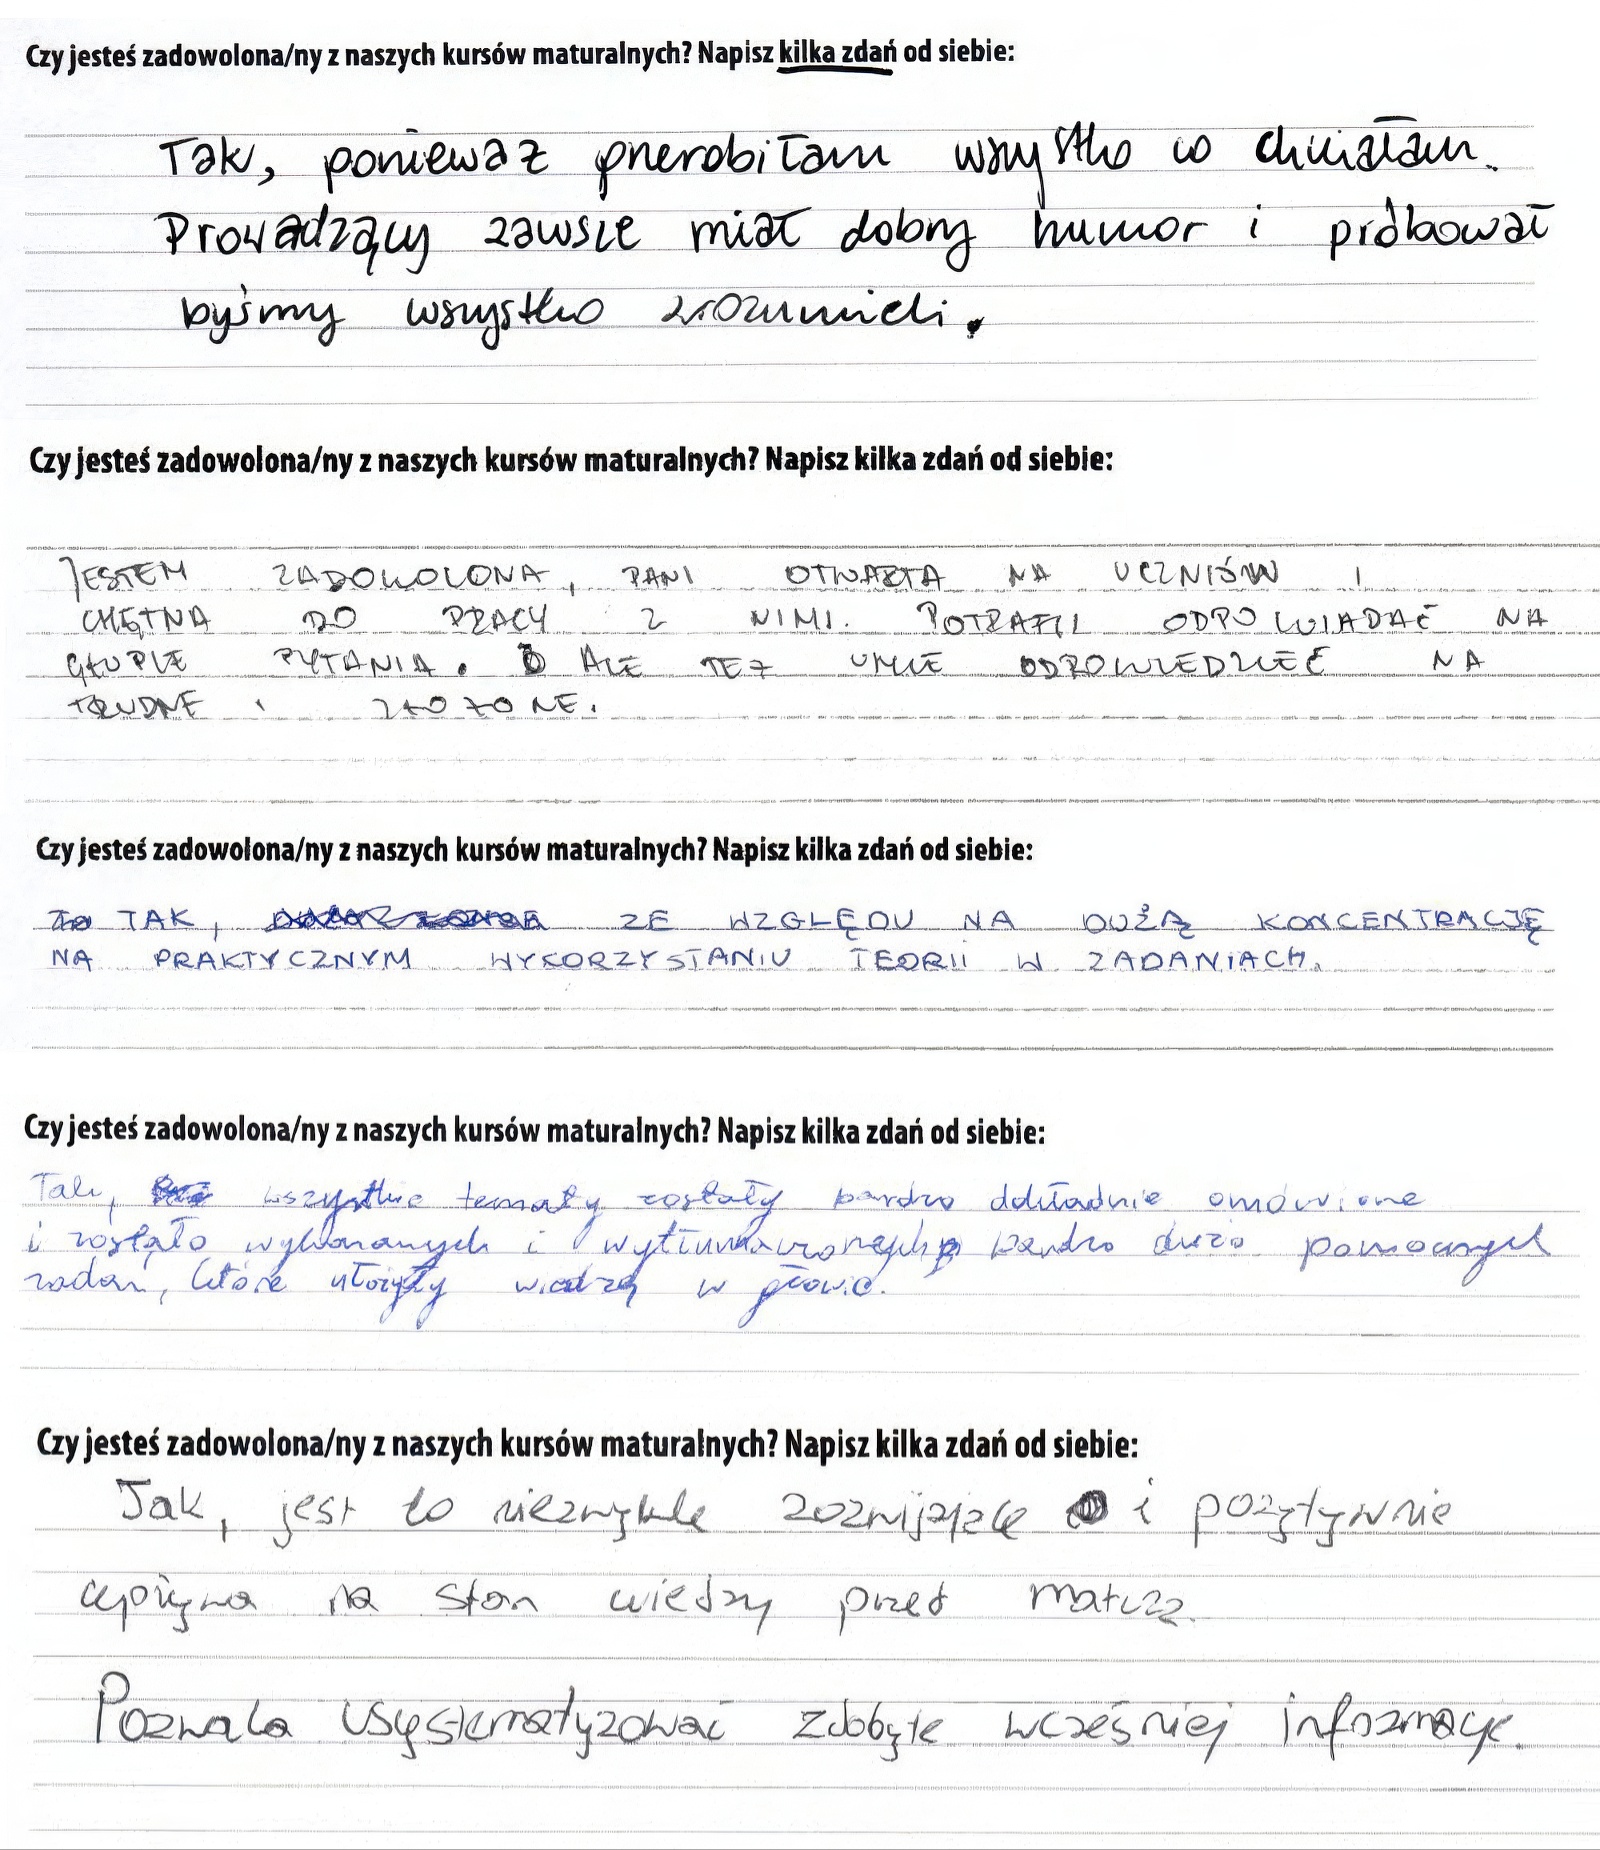 Czy jesteś zadowolona/ny z naszych kursów maturalnych? Napisz kilka zdań od siebie:
Tak, ponieważ przerobiłam wszystko co chciałam.
Prowadzący zawsze miał dobry humor i próbował
byśmy wszystko zrozumieli.
Czy jesteś zadowolona/ny z naszych kursów maturalnych? Napisz kilka zdań od siebie:
JESTEM ZADOWOLONA, PANI OTWARTA NA UCZNIÓW I
CHĘTNA DO PRACY Z NIMI. POTRAFII ODPOWIADAĆ NA
GŁUPIE PYTANIA. ALE TEŻ UMIE ODPOWIEDZIEĆ NA
TRUDNE I ZŁOŻONE.
Czy jesteś zadowolona/ny z naszych kursów maturalnych? Napisz kilka zdań od siebie:
TAK, ZE WZGLĘDU NA DUŻĄ KONCENTRACJĘ
NA PRAKTYCZNYM WYKORZYSTANIU TEORII W ZADANIACH.
Czy jesteś zadowolona/ny z naszych kursów maturalnych? Napisz kilka zdań od siebie:
Tak, wszystkie tematy zostały bardzo dokładnie omówione
i zostało wykonanych i wytłumaczonych bardzo dużo pomocnych
zadań, które ułożyły wiedzę w głowie.
Czy jesteś zadowolona/ny z naszych kursów maturalnych? Napisz kilka zdań od siebie:
Tak, jest to niezwykle rozwijające i pozytywnie
wpływa na stan wiedzy przed maturą.
Pozwala usystematyzować zdobyte wcześniej informacje.